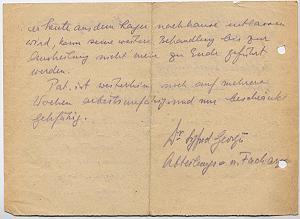 heute aus dem Lager nachhause entlassen
wird, kann seine weitere Behandlung bis zur
Ausheilung nicht mehr zu Ende geführt
werden.
Pat. ist weiterhin noch auf mehrere
Wochen arbeitsunfähig und nur beschränkt
gehfähig.
Dr
Abteilungs